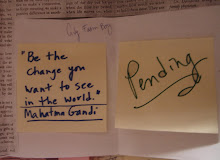 "Be the
Change you
want to see
in the world."
Mahatma Gandi
Pending